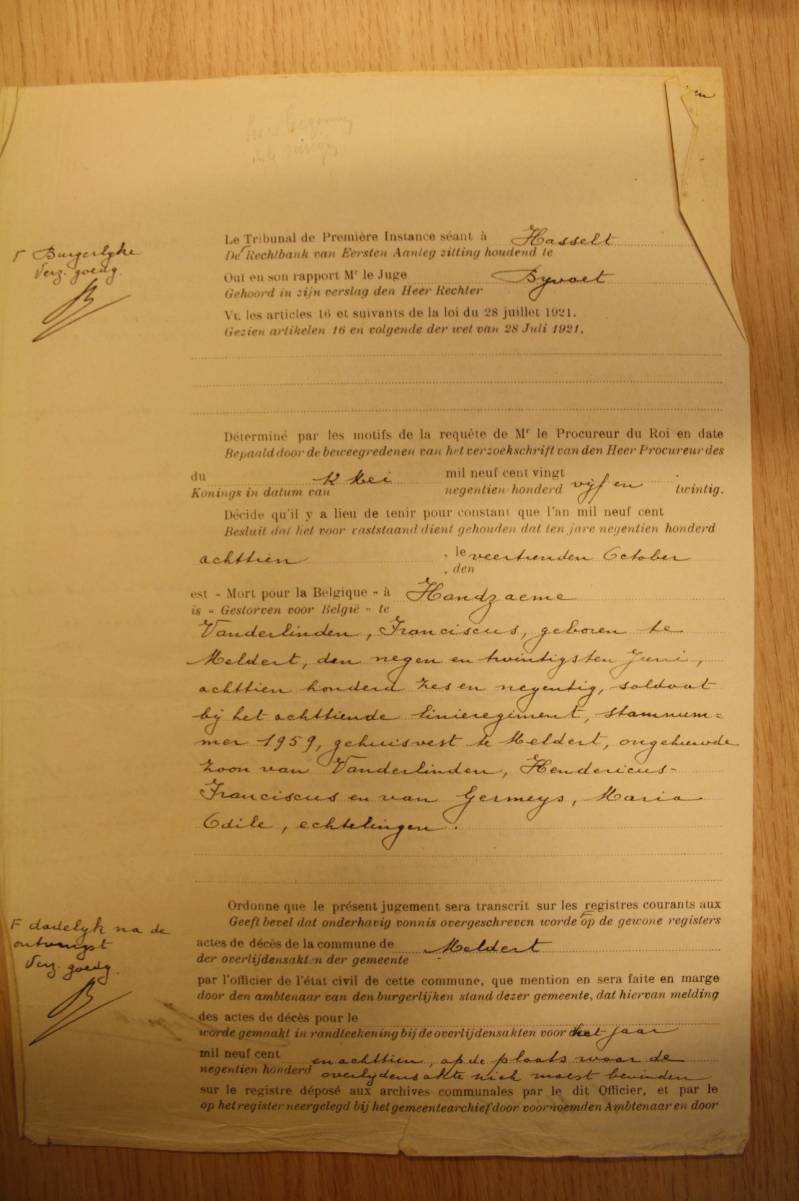 Le Tribunal de Première Instance séant à Hasselt
De Rechtbank van Eersten Aanleg zitting houdend te
Γ Burgerlyke
Verz. goedg.
Ouï en son rapport Mr le Juge Byvoet
Gehoord in zijn verslag den Heer Rechter
Vu les articles 16 et suivants de la loi du 28 juillet 1921.
Gezien artikelen 16 en volgende der wet van 28 Juli 1921.
Déterminé par les motifs de la requête de Mr le Procureur du Roi en date
Bepaald door de beweegredenen van het verzoekschrift van den Heer Procureur des
du 12 Mei mil neuf cent vingt
Konings in datum van negentien honderd vijf en twintig.
Décide qu'il y a lieu de tenir pour constant que l'an mil neuf cent
Besluit dat het voor vaststaand dient gehouden dat ten jare negentien honderd
achttien , le veertienden October
, den
est « Mort pour la Belgique » à Handzaeme
is « Gestorven voor België » te
Vanderlinden, Franciscus, geboren te
Meldert, den negen en twintigsten Juni,
achttien honderd zes en negentig, soldaat
bij het achttiende linieregiment, stamnum=
mer 1959, gehuisvest te Meldert, ongehuwde
zoon van Vanderlinden, Hendericus-
Franciscus en van Germeys, Maria
Odile, echtelingen.
Ordonne que le présent jugement sera transcrit sur les registres courants aux
Geeft bevel dat onderhavig vonnis overgeschreven worde op de gewone registers
F dadelyk na de
ontvangst
Verz. goedg.
actes de décès de la commune de Meldert
der overlijdensakten der gemeente
par l'officier de l'état civil de cette commune, que mention en sera faite en marge
door den ambtenaar van den burgerlijken stand dezer gemeente, dat hiervan melding
des actes de décès pour le
worde gemaakt in randteekening bij de overlijdensakten voor het jaar
mil neuf cent en achttien, op de plaats waar de
negentien honderd overlydensakte zich moest bevinden
sur le registre déposé aux archives communales par le dit Officier, et par le
op het register neergelegd bij het gemeentearchief door voornoemden Ambtenaar en door